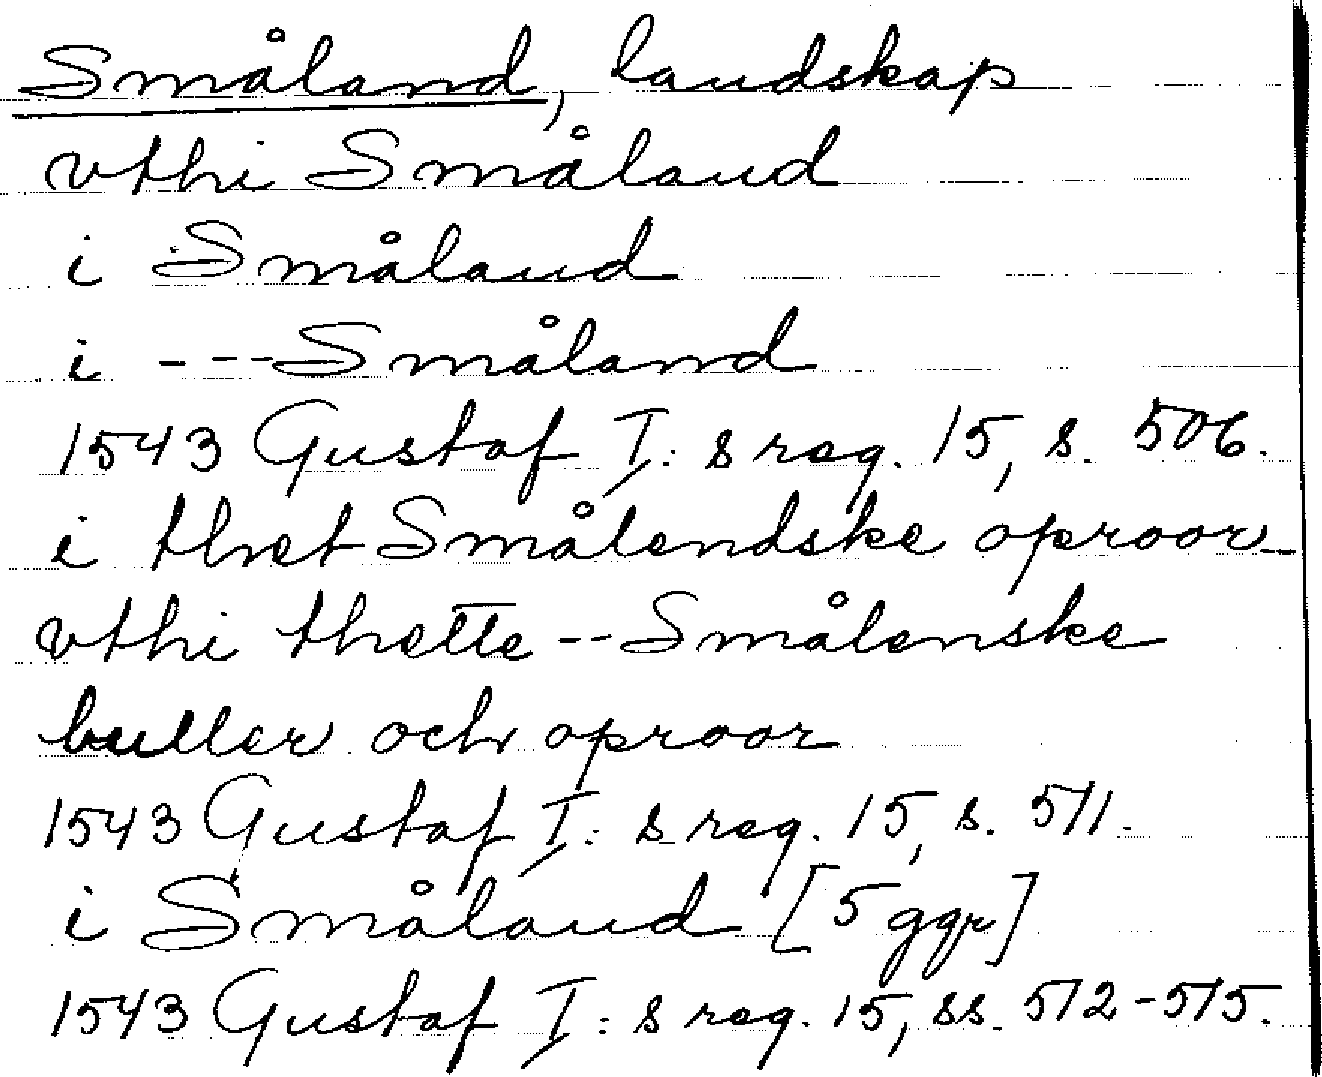 Småland, landskap
vthi Småland
i Småland
i --- Småland
1543 Gustaf I:s reg. 15, s. 506.
i thet Smålendske oproor
vthi thette -- Smålenske
buller och oproor
1543 Gustaf I:s reg. 15, s. 511.
i Småland [5 ggr]
1543 Gustaf I:s reg. 15, ss. 512-515.